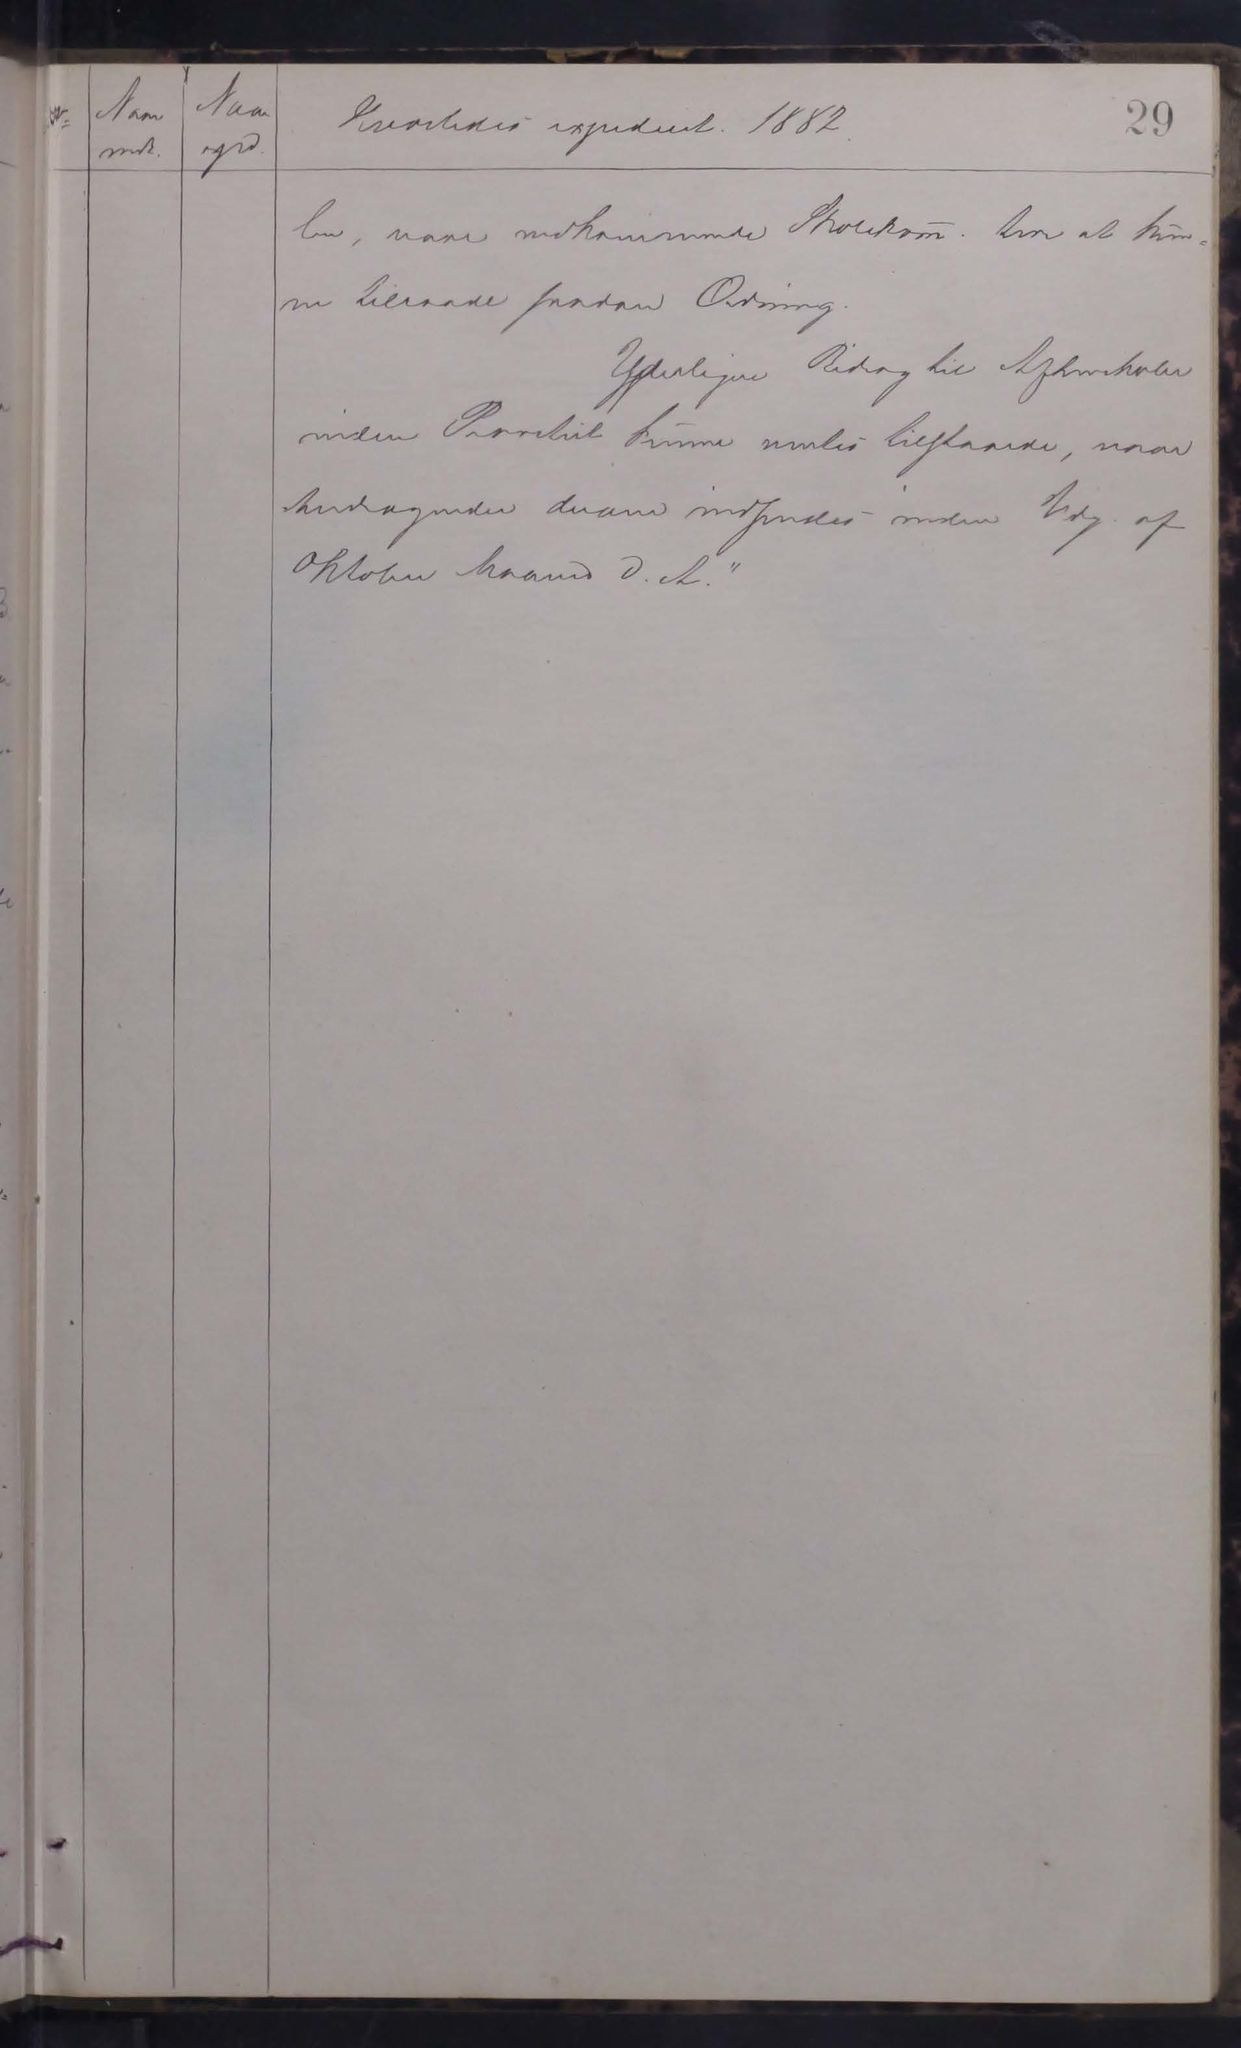 Naar
modt.
Naar
exp'd.
Hvorledes expederet. 1882
29
len, naar vedkommende Skolekom̄. tror at kun-
ne tilraade saadan Ordning.
Yderligere Bidrag til Aftenskoler
inden Provstiet kunne ventes tilstaaede, naar
Andragender derom indsendes inden Udg. af
Oktober Maaned d. A."